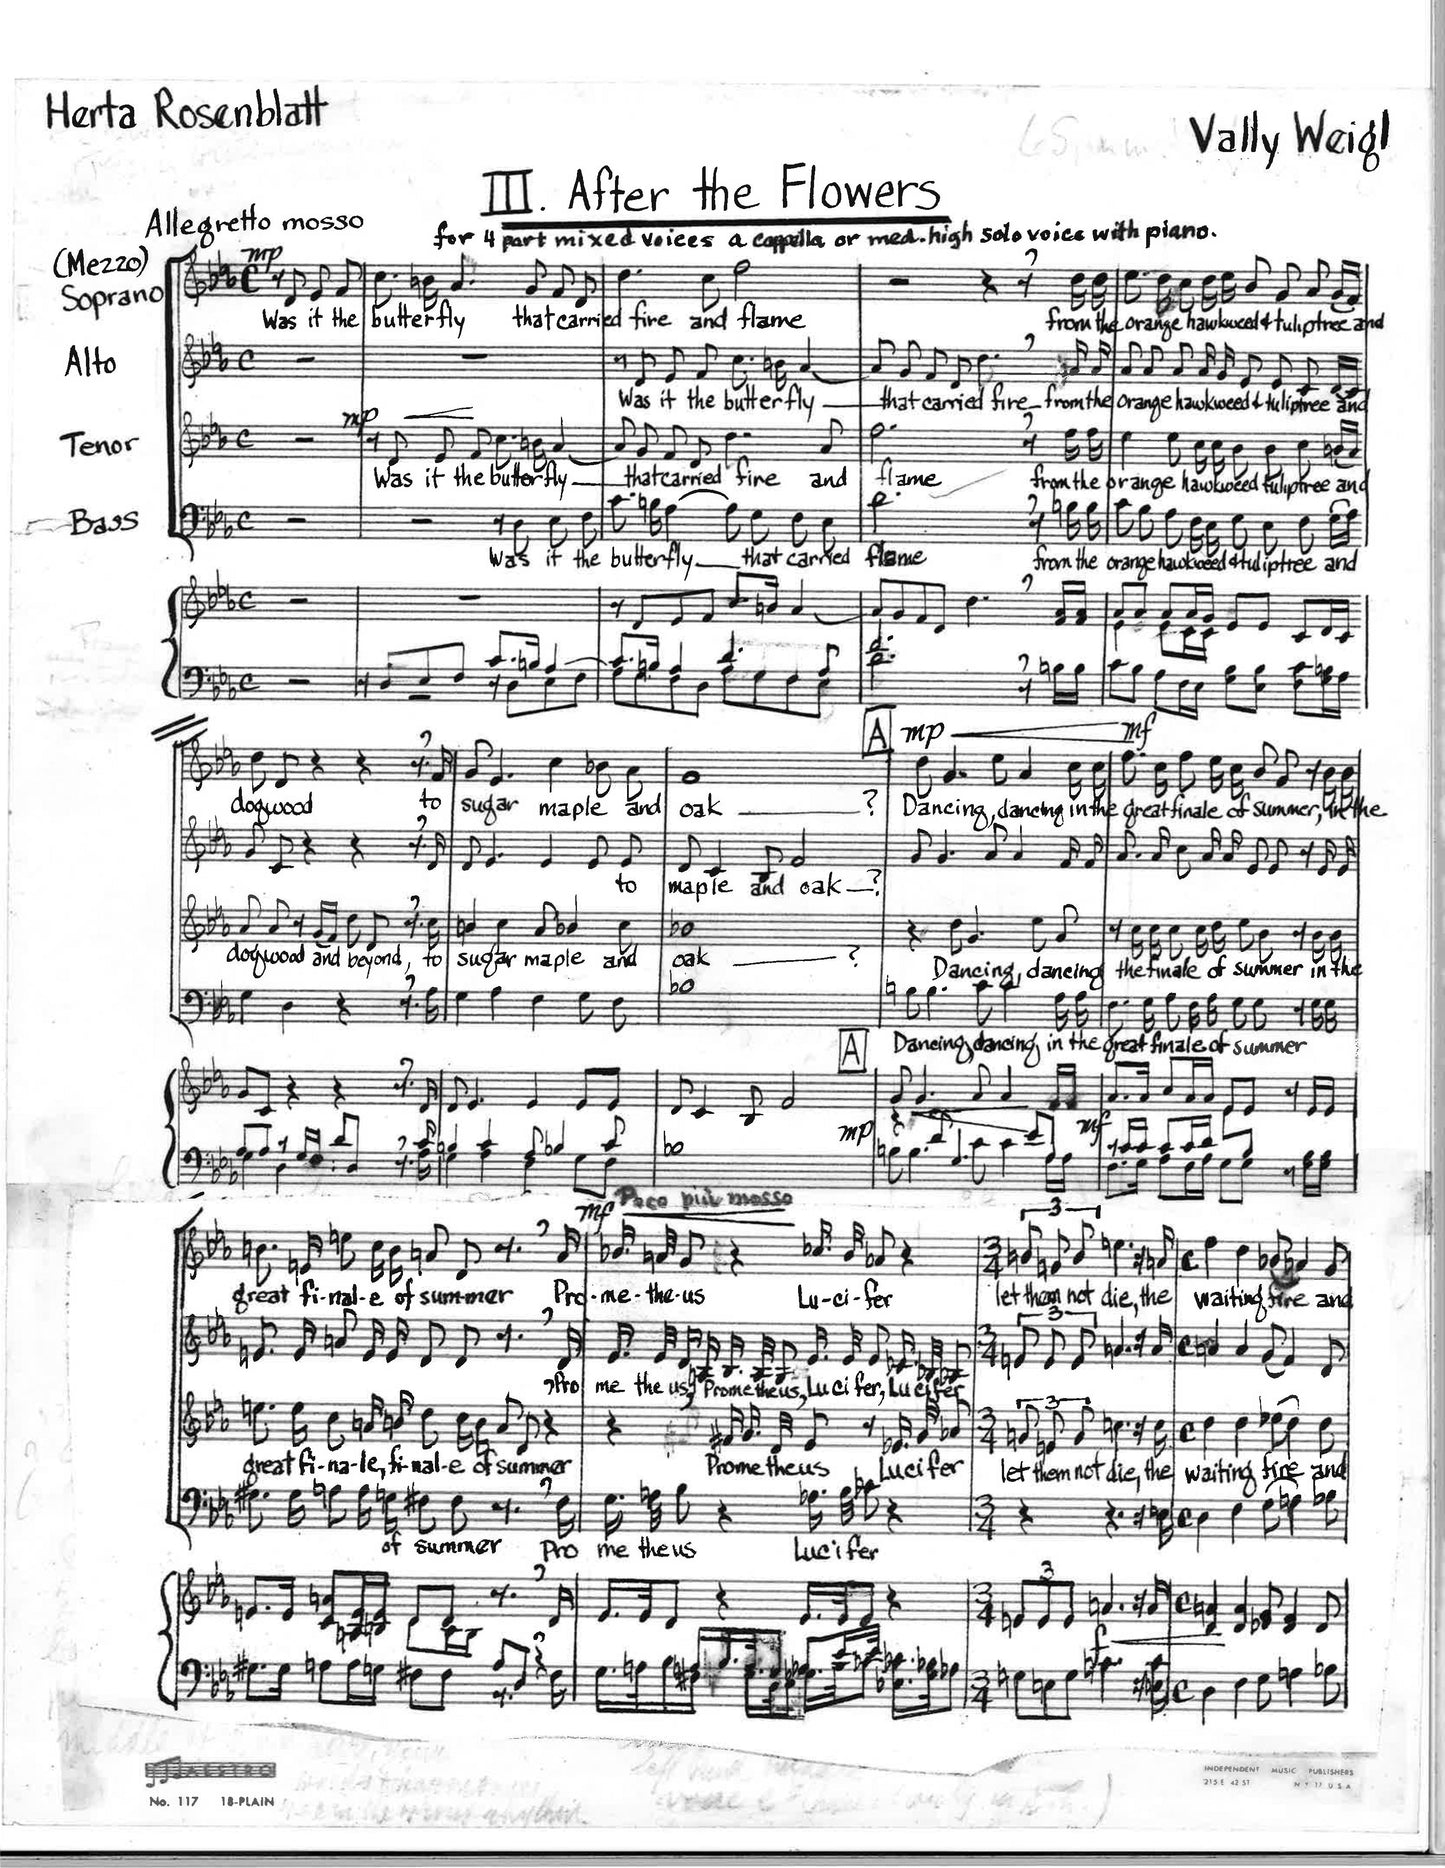 Herta Rosenblatt
Vally Weigl
III. After the Flowers
Allegretto mosso
for 4 part mixed voices a cappella or med. high solo voice with piano.
(Mezzo)
Soprano
mp
Was it the butterfly that carried fire and flame from the orange hawkweed & tuliptree and
Alto
Was it the butterfly that carried fire from the orange hawkweed & tuliptree and
mp
Tenor
Was it the butterfly that carried fire and flame from the orange hawkweed tuliptree and
Bass
Was it the butterfly that carried flame from the orange hawkweed & tuliptree and
A mp mf
dogwood to sugar maple and oak ? Dancing, dancing in the great finale of summer, in the
to maple and oak ?
dogwood and beyond, to sugar maple and oak ? Dancing, dancing the finale of summer in the
A
Dancing, dancing, in the great finale of summer
mp mf
Poco più mosso
mf
3
3/4
great fi-nal-e of summer Pro-me-the-us Lu-ci-fer let them not die, the waiting fire and
3
3/4
Pro me the us, Prometheus, Lu ci fer, Lucifer
3
3/4
great fi-na-le, fi-nal-e of summer Prometheus Lucifer let them not die, the waiting fire and
3/4
of summer Pro me the us Lucifer
3
3/4
f
3/4
No. 117 18-PLAIN
INDEPENDENT MUSIC PUBLISHERS
215 E 42 ST N Y 17 U S A